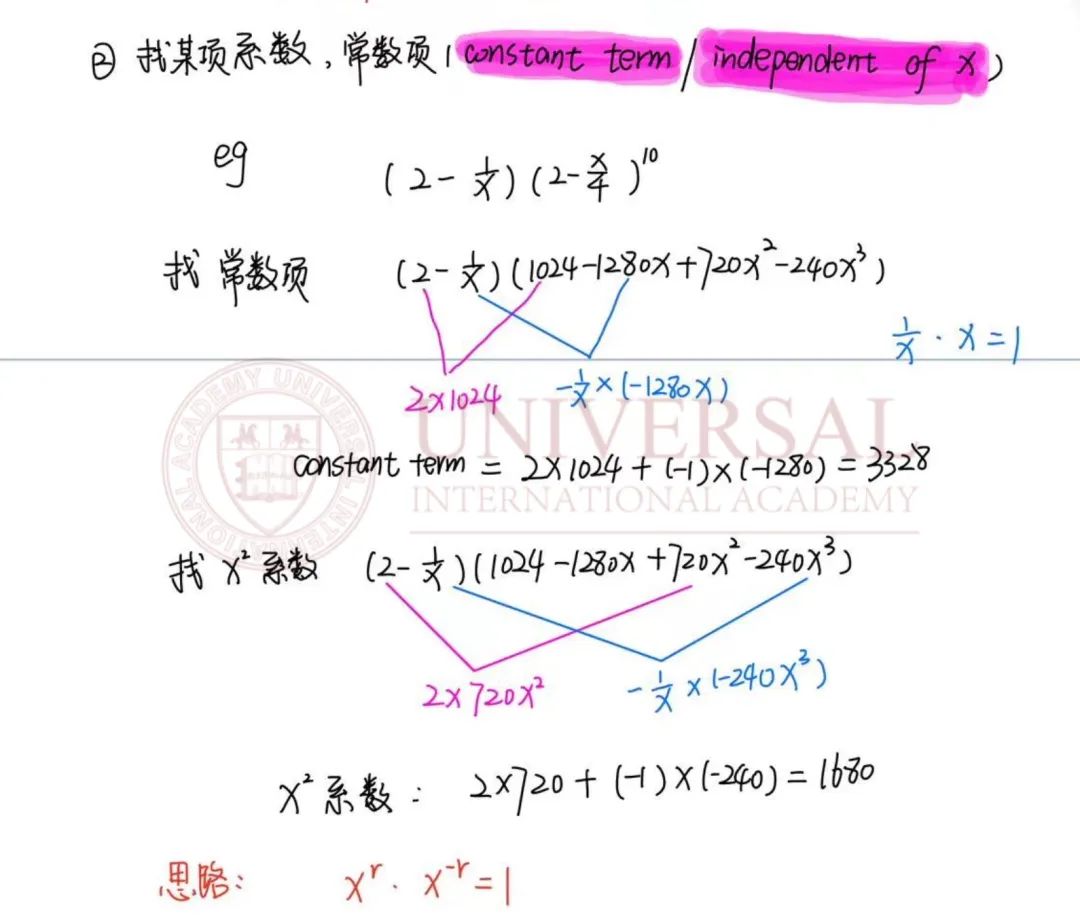 ② 找某项系数,常数项(constant term/independent of x)
eg (2-1/x)(2-x/4)^10
找常数项 (2-1/x)(1024-1280x+720x²-240x³)
1/x·x=1
2×1024 -1/x×(-1280x)
UNIVERSAL
INTERNATIONAL ACADEMY
constant term = 2×1024+(-1)×(-1280)=3328
找 x²系数 (2-1/x)(1024-1280x+720x²-240x³)
2×720x² -1/x×(-240x³)
x²系数: 2×720+(-1)×(-240)=1680
思路: x^r·x^-r=1